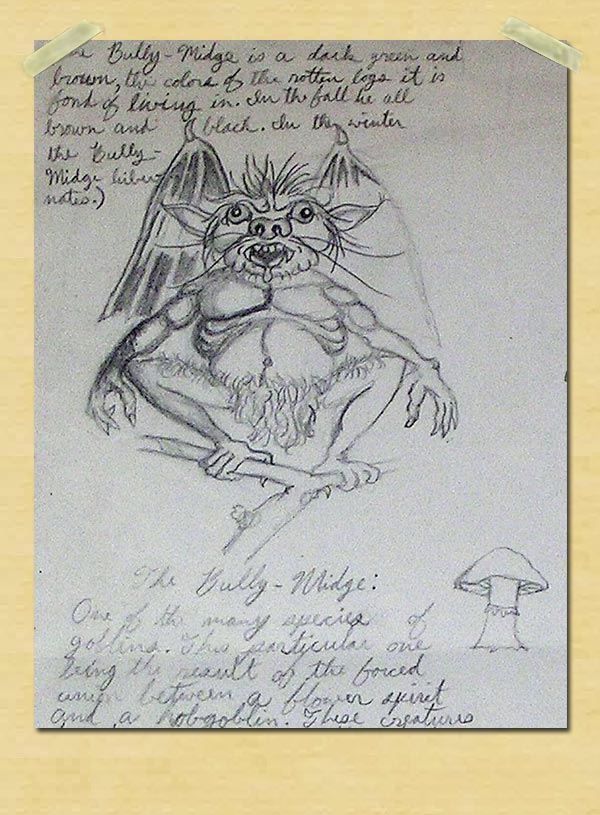 The Bully-Midge is a dark green and
brown, the colors of the rotten logs it is
fond of living in. In the fall he all
brown and black. In the winter
the Bully-
Midge hiber-
nates.)
The Bully-Midge:
One of the many species of
goblins. This particular one
being the result of the forced
union between a flower spirit
and a hobgoblin. These creatures